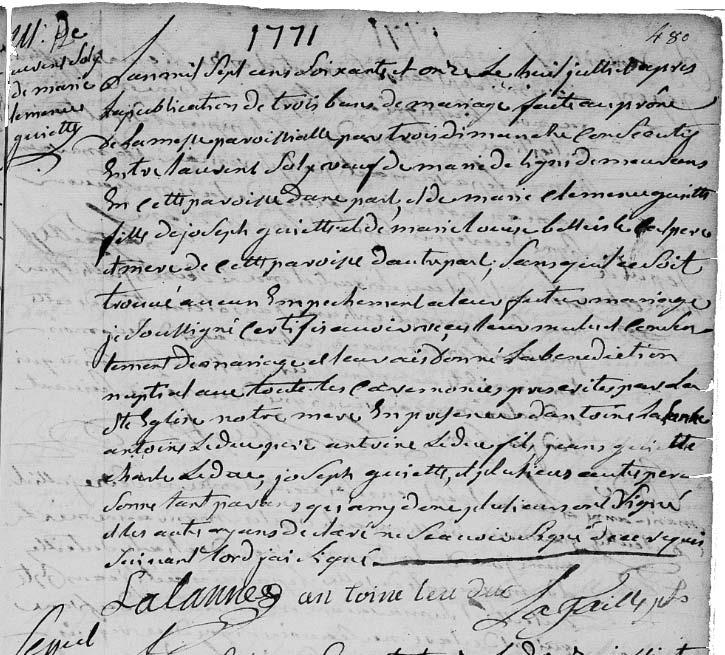 M. De
laurent Solz
de marie
clemence
guiette
1771
480
L'an mil Sept cens Soixante et onze Le huit juillet apres
La publication de trois bans de mariage faite au prône
de La messe paroissialle par trois dimanche Consecutif
Entre laurent Solz veuf de marie de ligni demeurans
En cette paroisse d'une part, et de marie clemence guiette
fille de joseph guiette et de marie louise le pere
et mere de cette paroisse d'autre part; Sans qu'il se Soit
trouvé aucun Empechement a leur futur mariage
je Soussigné Certifie avoir reçu leur mutuel Consen
tement de mariage et leur ais Donné La benediction
nuptial avec toute les Ceremonies prescrites par la
Ste Eglise notre mere En presence d'antoine
antoine Leduc pere antoine Leduc fils, jean guiette
charle Leduc, joseph guiette, et plusieurs autre per
Sonne tant parens qu'amy done plusieurs ont Signé
et les autre ayans declaré ne Scavoir Signé de ce requis
Suivant Lord j'ai Signé
Lalannes antoine leu duc La Taille ptr
Sepul